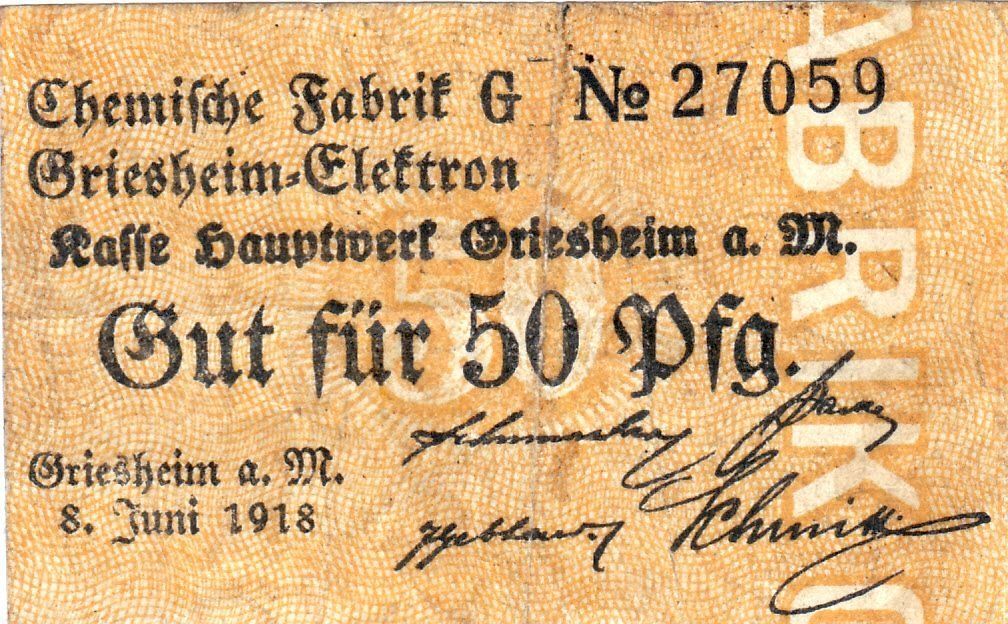 Chemische Fabrik G № 27059
Griesheim-Elektron
Kasse Hauptwerk Griesheim a. M.
Gut für 50 Pfg.
Griesheim a. M.
8. Juni 1918
Schmitt
50
ABRIK